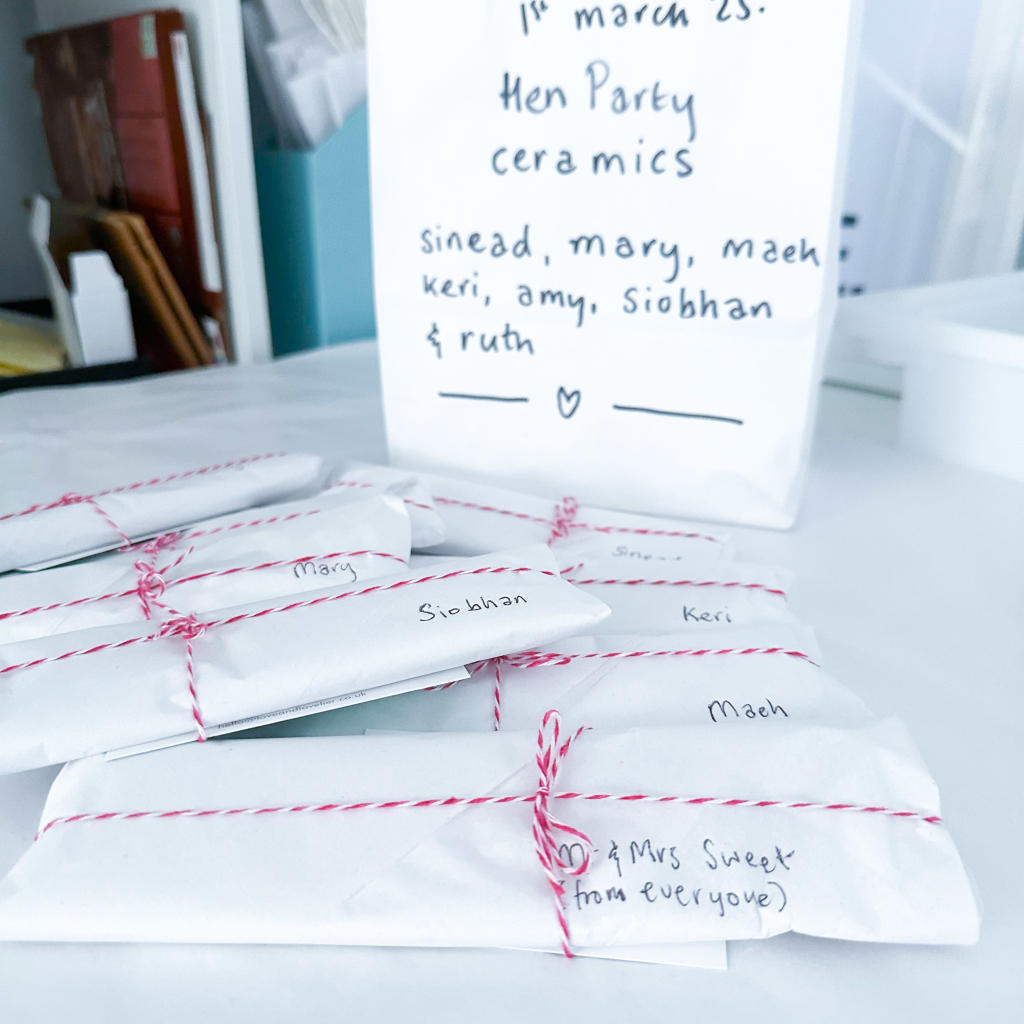 1st march 25.
Hen Party
ceramics
sinead, mary, maeh
keri, amy, siobhan
& ruth
Sinead
Mary
Siobhan
Keri
hello@loveandlovelier.co.uk
Maeh
Mr & Mrs Sweet
(from everyone)